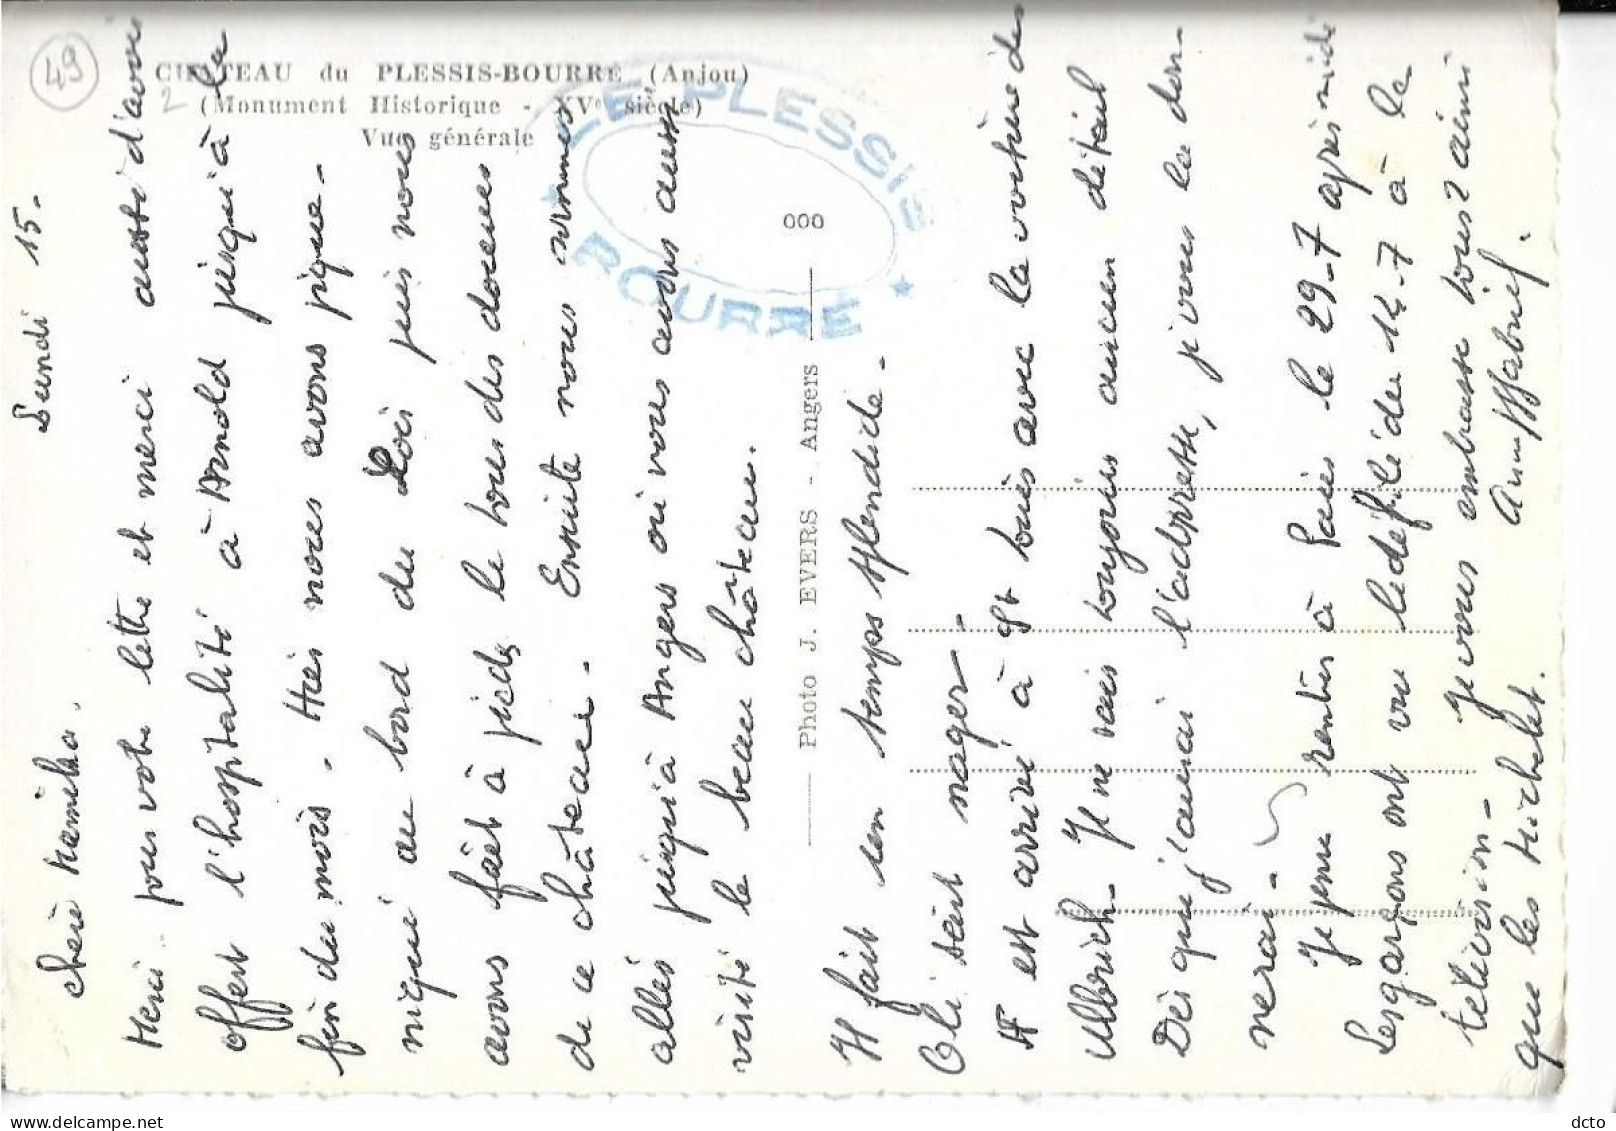 49
2
CHATEAU du PLESSIS-BOURRÉ (Anjou)
(Monument Historique - XVe siècle)
Vue générale
LE PLESSIS
BOURRÉ
000
Photo J. EVERS - Angers
Lundi 15.
Chère
Merci pour votre lettre et merci aussi d'avoir
offert l'hospitalité à Arnold jusqu'à la
fin du mois. Hier nous avons pique-
niqué au bord du Loir puis nous
avons fait à pieds le tour des douves
de ce château. Ensuite nous sommes
allés jusqu'à Angers où nous avons aussi
visité le beau château.
Il fait un temps splendide.
Oli sait nager.
est arrivé à St avec la voiture de
Ulbrich. Je ne sais toujours aucun détail
Dès que j'aurai l'adresse, je vous la don-
nerai.
Je pense rentrer à Paris le 29-7 après midi
Les garçons ont vu le défilé du 14-7 à la
télévision - Je vous embrasse tous 2 ainsi
que les Michelet.
dcto